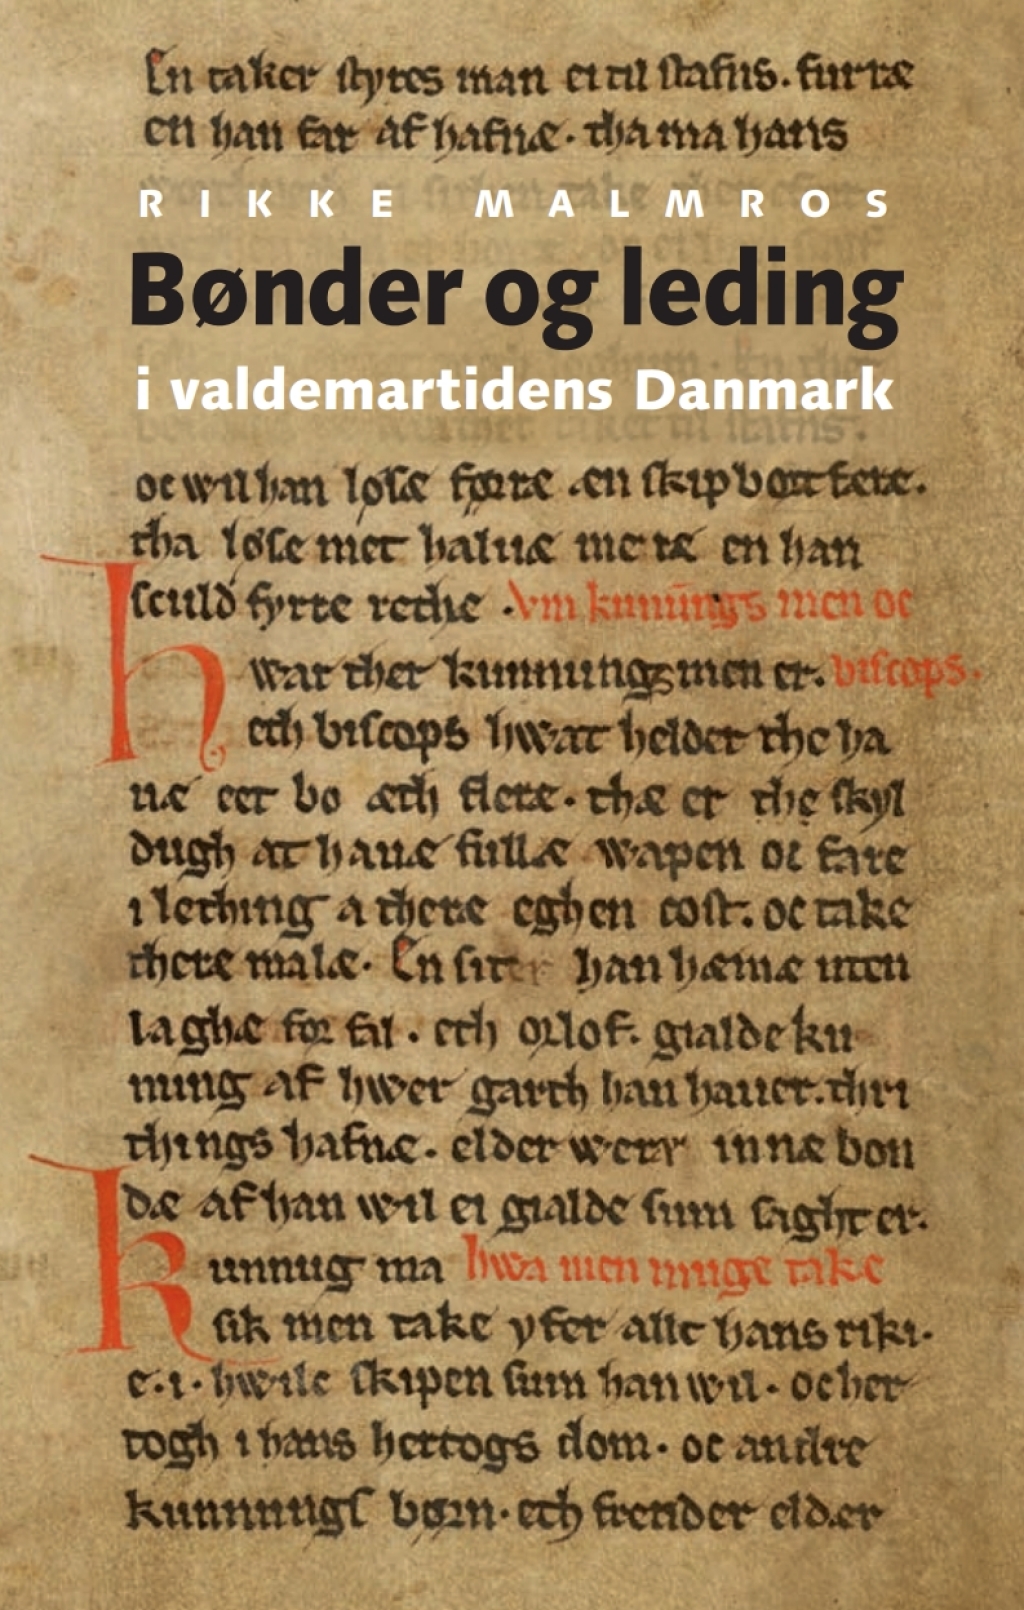 En taker styres man ei til stafns. furræ
en han far af hafnæ. tha ma hans
RIKKE MALMROS
Bønder og leding
i valdemartidens Danmark
oc wil han løsæførræ æn skip bort fere.
tha løse met haluæ me ræ en han
sculd fyrre rethe. Vm kunūngs men oc
war ther kunnungs men er. biscops.
eth biscops hwat helder the ha
uæ eet bo æth flere. thæ er the skyl
dugh at hauæ fullæ wapen oc fare
i lething a there eghen cost. oc take
there malæ. En sit han hæmæ uten
laghæ for fal. eth orlof. gialde ku
nung af hwer garth han hauer. thri
things hafnæ. elder wer innæ bon
dæ af han wil ei gialde sum saght er.
Kunnug ma hwa men muge take
sik men take yfer allt hans riki.
e.i. hwilc skipen sum han wil. oc her
togh i hans hertogs dom. oc andre
kunnungs børn. eth frender elder